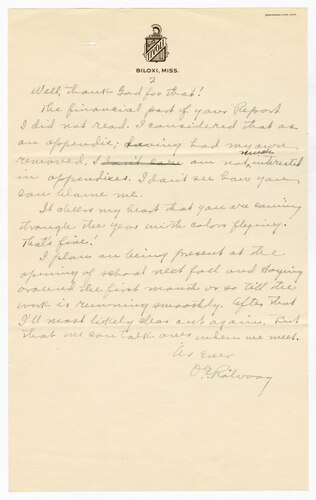 TIVOLI
BILOXI, MISS.
2
Well, thank God for that!
The financial part of your Report
I did not read. I considered that as
an appendix; having had my own
removed, I don't care am not much interested
in appendices. I don't see how you
can blame me.
It cheers my heart that you are coming
through the year with colors flying.
That's fine!
I plan on being present at the
opening of school next fall and staying
around the first month or so till the
work is running smoothly. After that
I'll most likely clear out again. But
that we can talk over when we meet.
As Ever